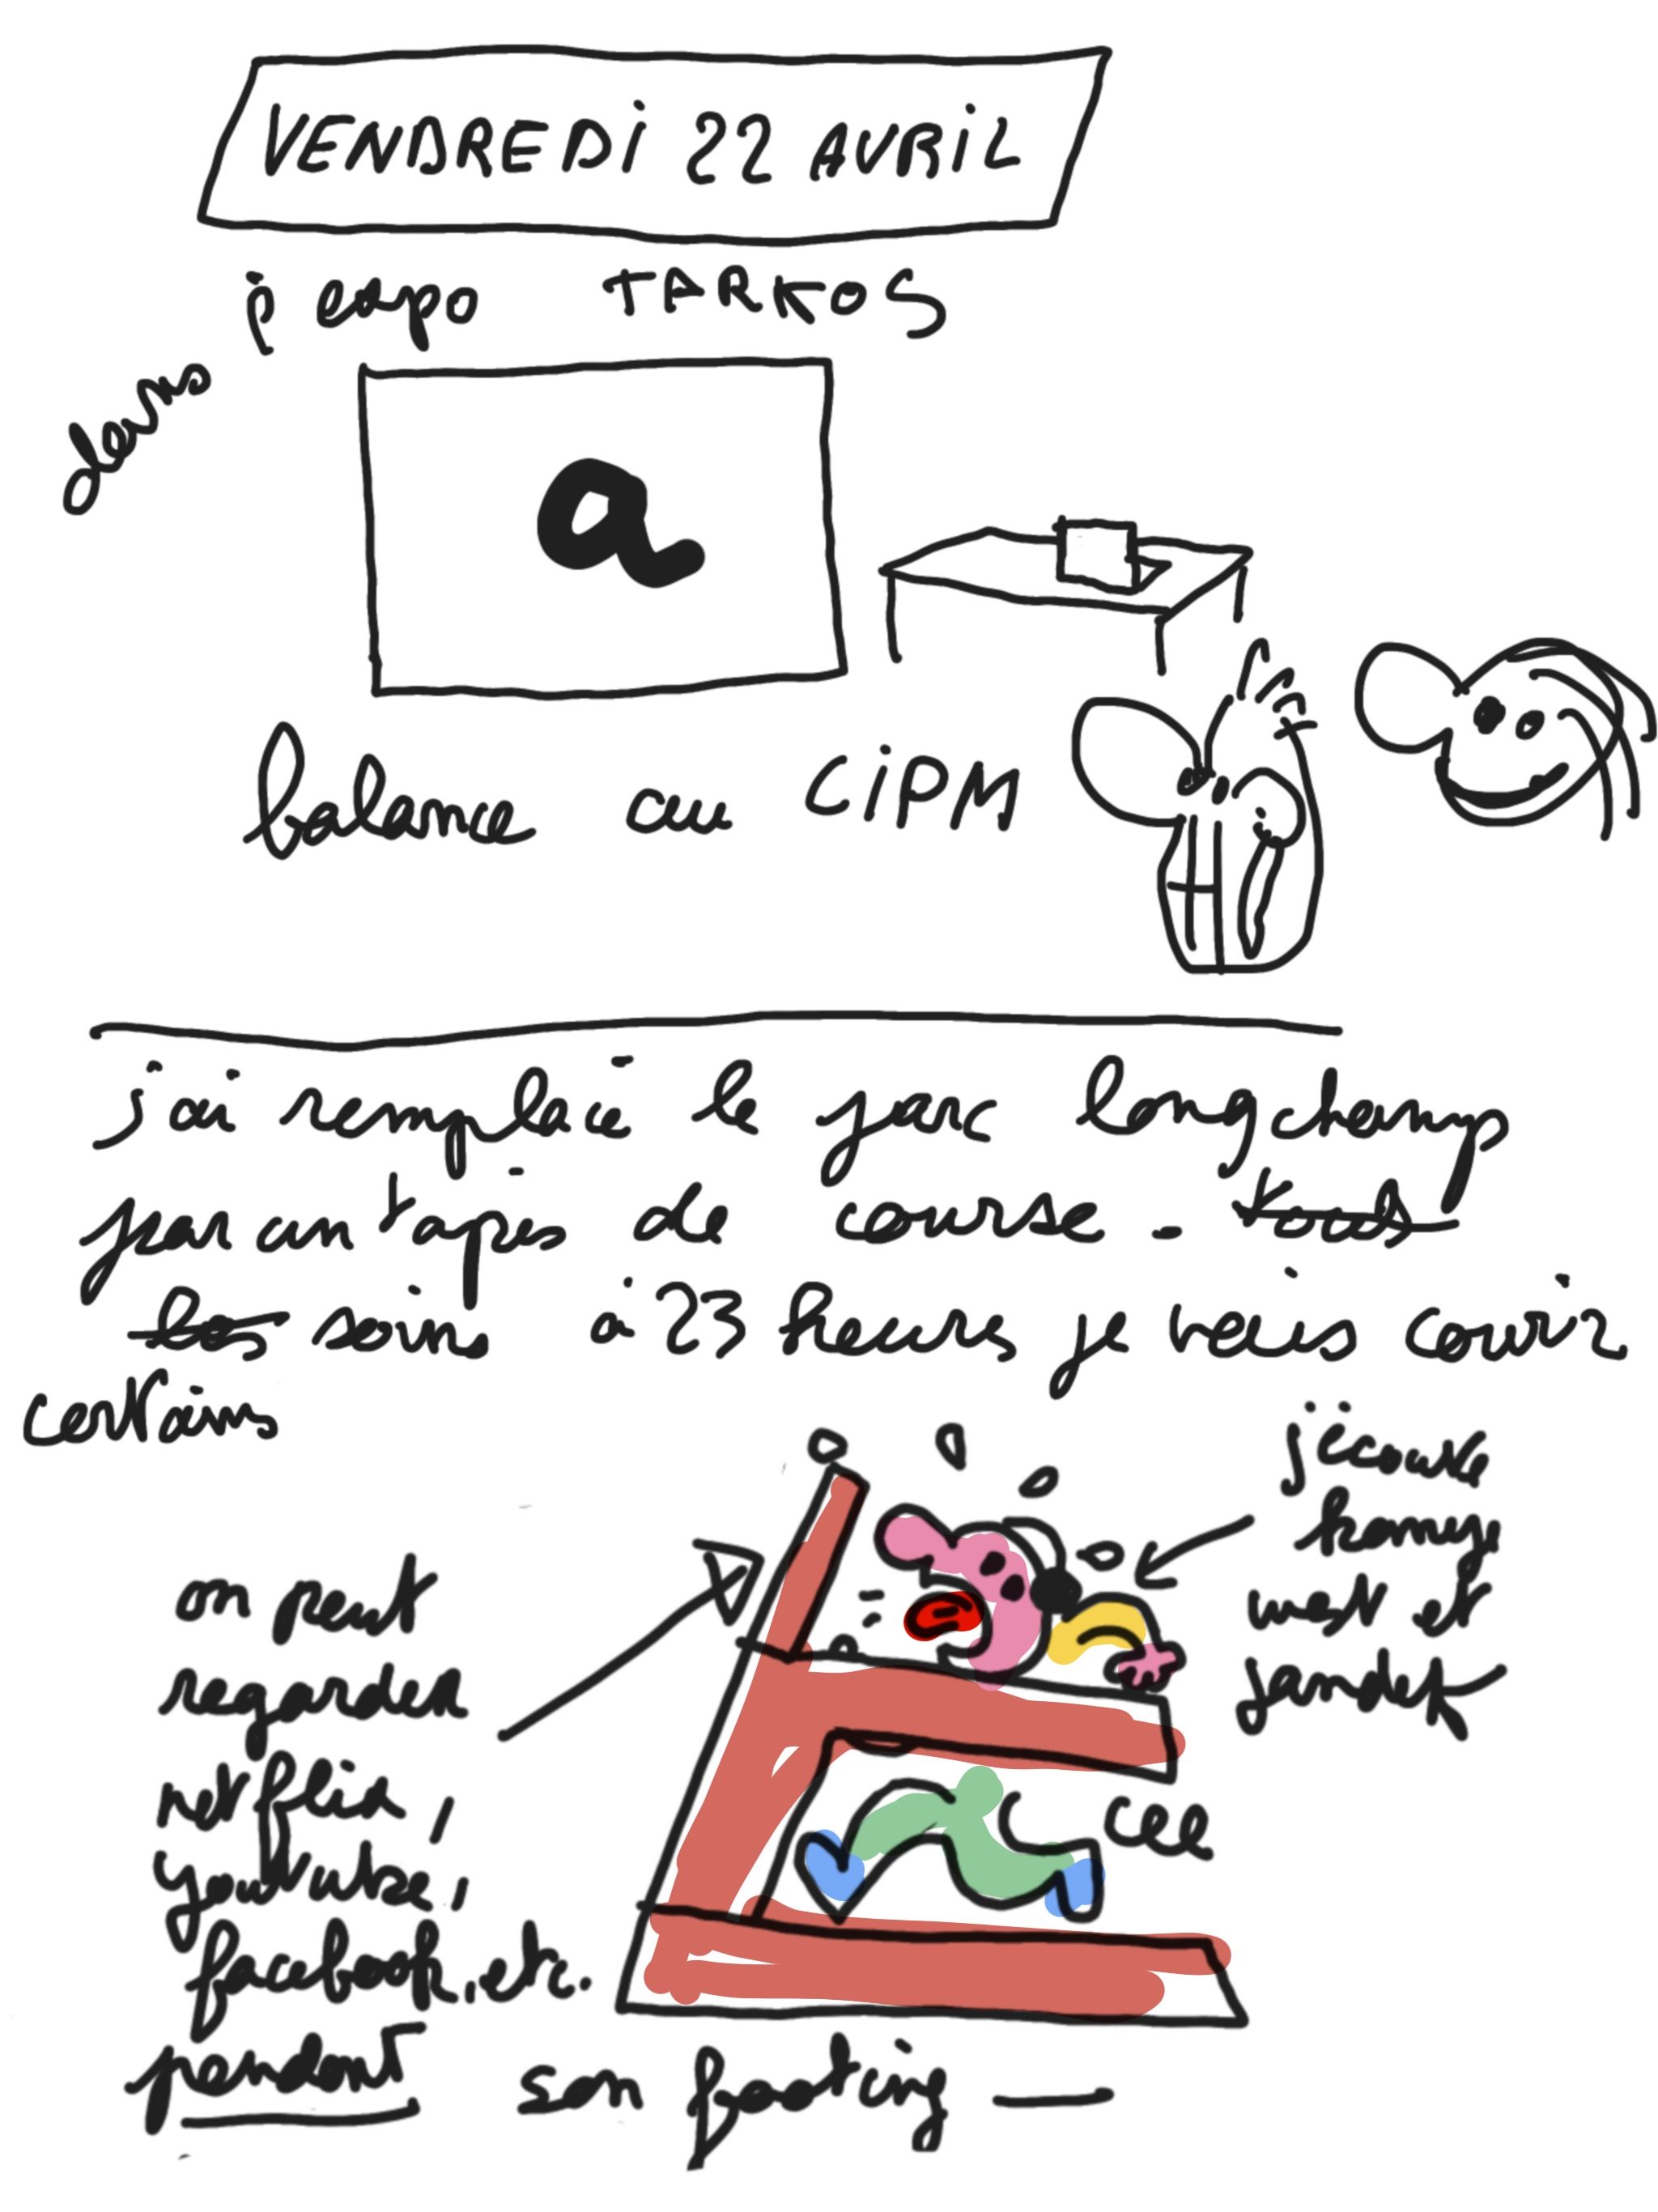 VENDREDi 22 AVRiL
expo TARKOS
dans
a
balance au CiPM
j'ai remplacé le parc longchamp
par un tapis de course - tous
les soirs à 23 heures je vais courir
certains
j'écoute
kanye
west et
jandek
on peut
regarder
netflix,
youtube,
facebook, etc.
pendant son footing —